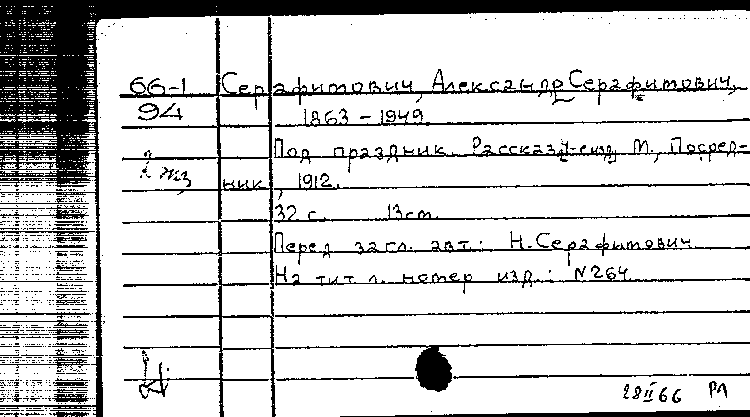 66-1 Серафимович, Александр Серафимович,
94 1863 – 1949.
Под праздник. Рассказ. М., Посред-
2 экз
ник, 1912.
32 с. 13 см.
Перед загл. авт.: Н. Серафимович
На тит. л. номер изд.: N264
28 II 66 РЛ